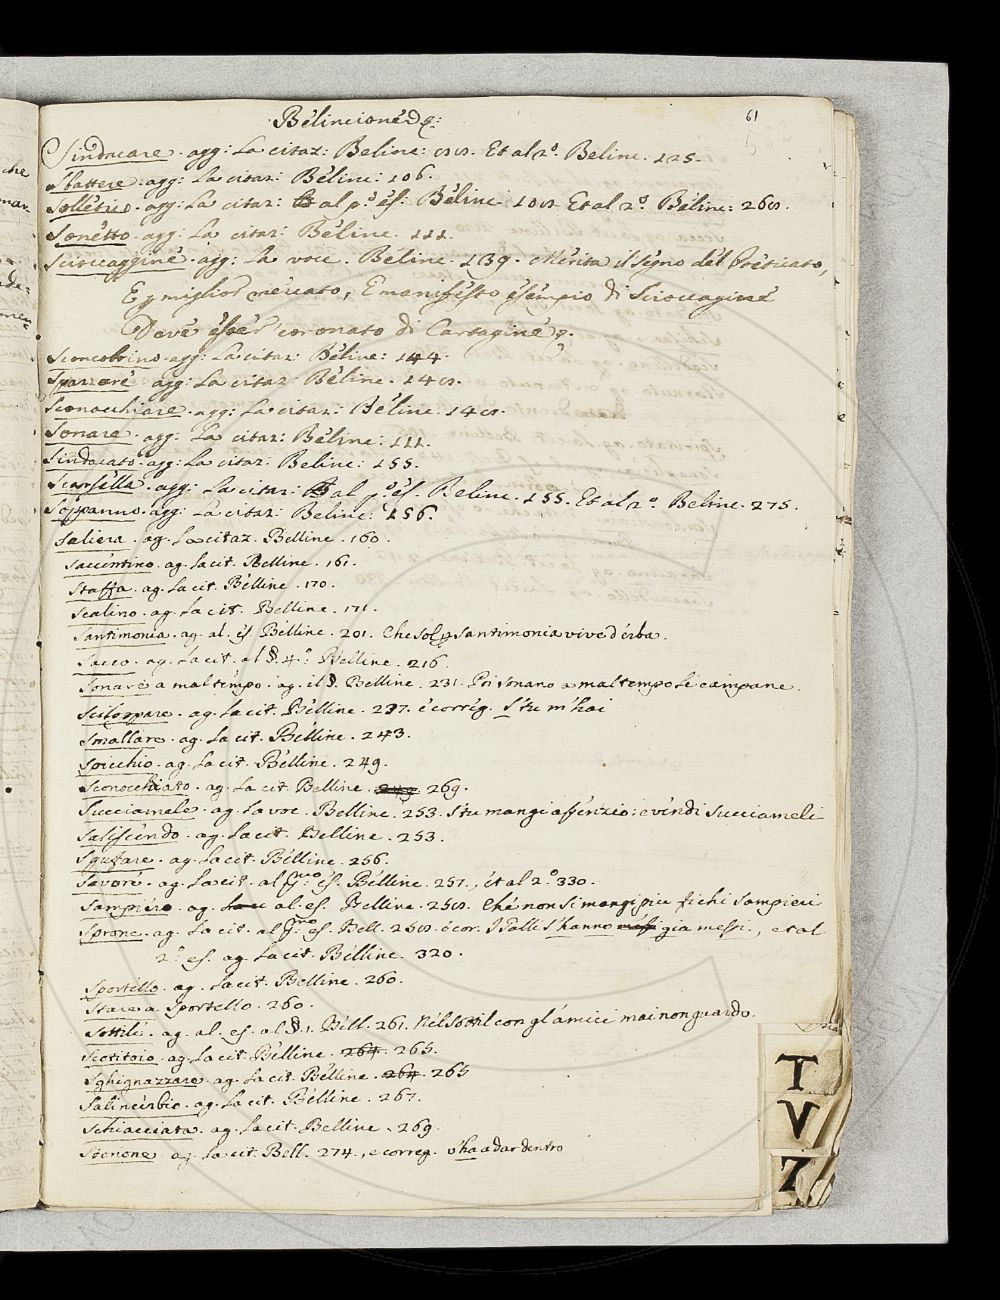 Belincione
61
Sindacare. agg: La citaz: Beline: Et al 2º. Beline. 125.
Sbattere. agg: La citaz: Béline: 106.
Sollético. agg: La citaz: al pº és: Béline. Et al 2º. Béline:
Sonétto. agg: La citaz: Béline. 111.
Scioccaggine. agg: La voce. Béline. 139. Mérita il segno dél
E miglior mércato, E manifésto esémpio di Scioccaginé
Dévé ésser coronato di Cartaginé
Sconcobrino. agg: La citaz: Béline: 144.
Spazzaré agg: La citaz: Béline.
Sconocchiare. agg: La citaz: Béline.
Sonare. agg: La citaz: Béline: 111.
Sindacato. agg: La citaz: Beline: 155.
Scarsélla. agg: La citaz: al pº és. Beline. 155. Et al 2º. Beline. 275.
Soppanno. agg: La citaz: Beline: 156.
Saliera. ag. La citaz. Belline. 160.
Saccentino. ag. La cit. Belline. 161.
Staffa. ag. La cit. Bélline. 170.
Scalino. ag. La cit. Belline. 171.
Santimonia. ag. al. és Bélline. 201. Che sol p santimonia vive d'érba.
Sacco. ag. La cit. al §. 4º. Belline. 216.
Sonaré a mal témpo. ag. il §. Belline. 231. Poi sonano a mal tempo le campane.
Sciloppare. ag. La cit. Bélline. 237. é corrég. S'tu m'hai
Smallare. ag. La cit. Bélline. 243.
Spicchio. ag. La cit. Bélline. 249.
Sconocchiato. ag. La cit. Belline. 249. 269.
Succiamele. ag. La voc. Belline. 253. S'tu mangi assenzio: e véndi Succiameli
Saliscéndo. ag. La cit. Belline. 253.
ag. La cit. Bélline. 256.
Savoré. ag. La cit. al és. Belline. 257., ét al 2º. 330.
Sampiéro. ag. al. es. Belline. Ché non si mangi piu fichi sampieri
Sprone. ag. La cit. al és. Bell. é cor. I Galli s'hanno già messi., et al
2º. es. ag. La cit. Bélline. 320.
Sportello. ag. La cit. Belline. 260.
Stare a Sportello. 260.
Sottilé. ag. al. es. al §. 1. Béll. 261. Nél sottil con gl'amici mai non guardo.
ag. La cit. Bélline. 264. 265.
Sghignazzare. ag. La cit. Bélline. 264. 265
ag. La cit. Bélline. 267.
Schiacciata. ag. La cit. Belline. 269.
ag. La cit. Bell. 274., e correg. v'ha a dar dentro
T
V
Z